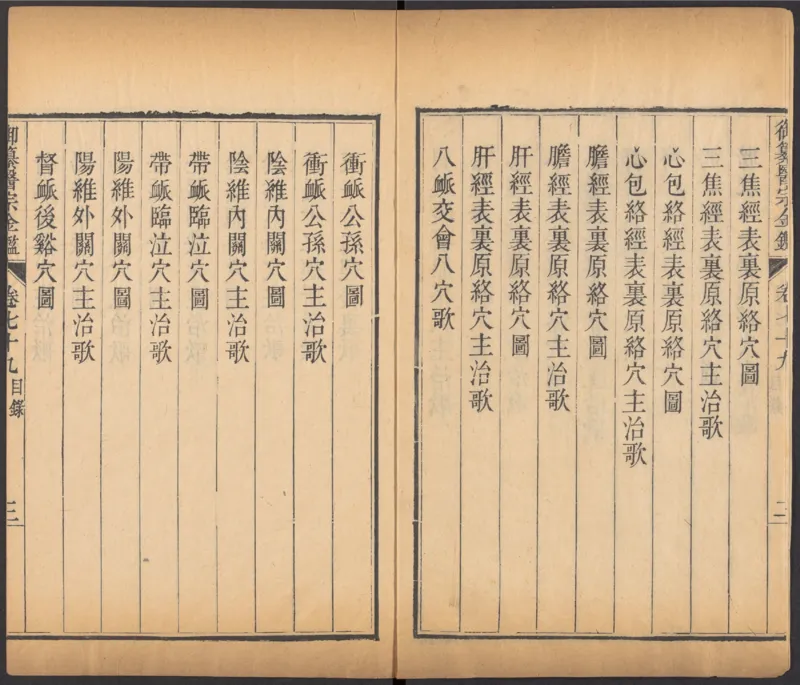 御纂醫宗金鑑 卷七十九 目錄 二
三焦經表裏原絡穴圖
三焦經表裏原絡穴主治歌
心包絡經表裏原絡穴圖
心包絡經表裏原絡穴主治歌
膽經表裏原絡穴圖
膽經表裏原絡穴主治歌
肝經表裏原絡穴圖
肝經表裏原絡穴主治歌
八脈交會八穴歌
衝脈公孫穴圖
衝脈公孫穴主治歌
陰維內關穴圖
陰維內關穴主治歌
帶脈臨泣穴圖
帶脈臨泣穴主治歌
陽維外關穴圖
陽維外關穴主治歌
督脈後谿穴圖
御纂醫宗金鑑 卷七十九 目錄 三